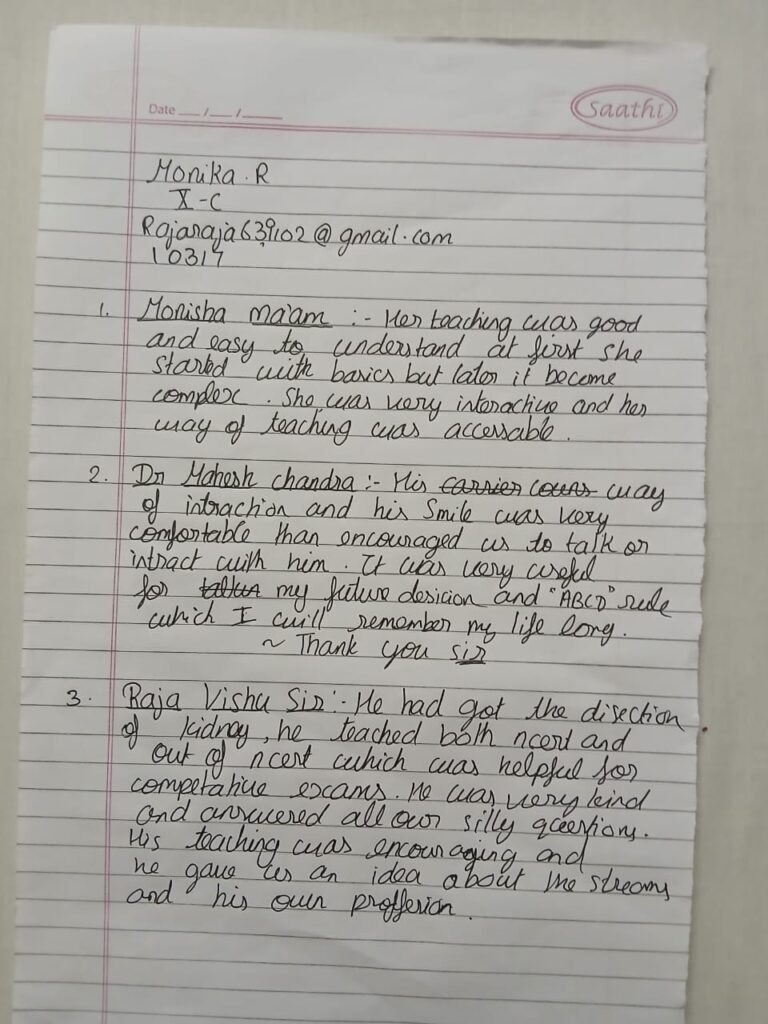 Date __/__/____
Saathi
Monika . R
X - C
Rajaraja639102@gmail.com
10317
1. Monisha ma'am :- Her teaching was good
and easy to understand at first she
started with basics but later it become
complex . She was very interactive and her
way of teaching was accessable .
2. Dr Mahesh chandra :- His carrier couns way
of intraction and his Smile was very
comfortable than encouraged us to talk or
intract with him . It was very useful
for talkin my future desicion and "ABCD" rule
which I will remember my life long .
~ Thank you sir
3. Raja Vishu Sir :- He had got the disection
of kidney , he teached both ncert and
out of ncert which was helpful for
competative excams . He was very kind
and answered all our silly questions .
His teaching was encouraging and
he gave us an idea about the streams
and his own profferion .